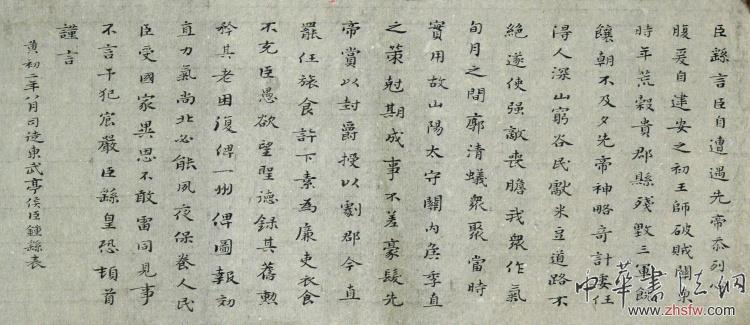 臣繇言臣自遭遇先帝忝列
腹爰自建安之初王師破賊關東
時年荒穀貴郡縣殘毀三軍餽
饟朝不及夕先帝神略奇計委任
得人深山窮谷民獻米豆道路不
絕遂使强敵喪膽我衆作氣
旬月之間廓清蟻衆聚當時
實用故山陽太守關內侯季直
之策剋期成事不差豪髮先
帝賞以封爵授以劇郡今直
罷任旅食許下素為廉吏衣食
不充臣愚欲望聖德錄其舊勲
矜其老困復俾一州俾圖報効
直力氣尚北必能夙夜保養人民
臣受國家異恩不敢雷同見事
不言干犯宸嚴臣繇皇恐頓首
謹言
黃初二年八月司徒東武亭侯臣鍾繇表
中華書法網
www.zhsfw.com